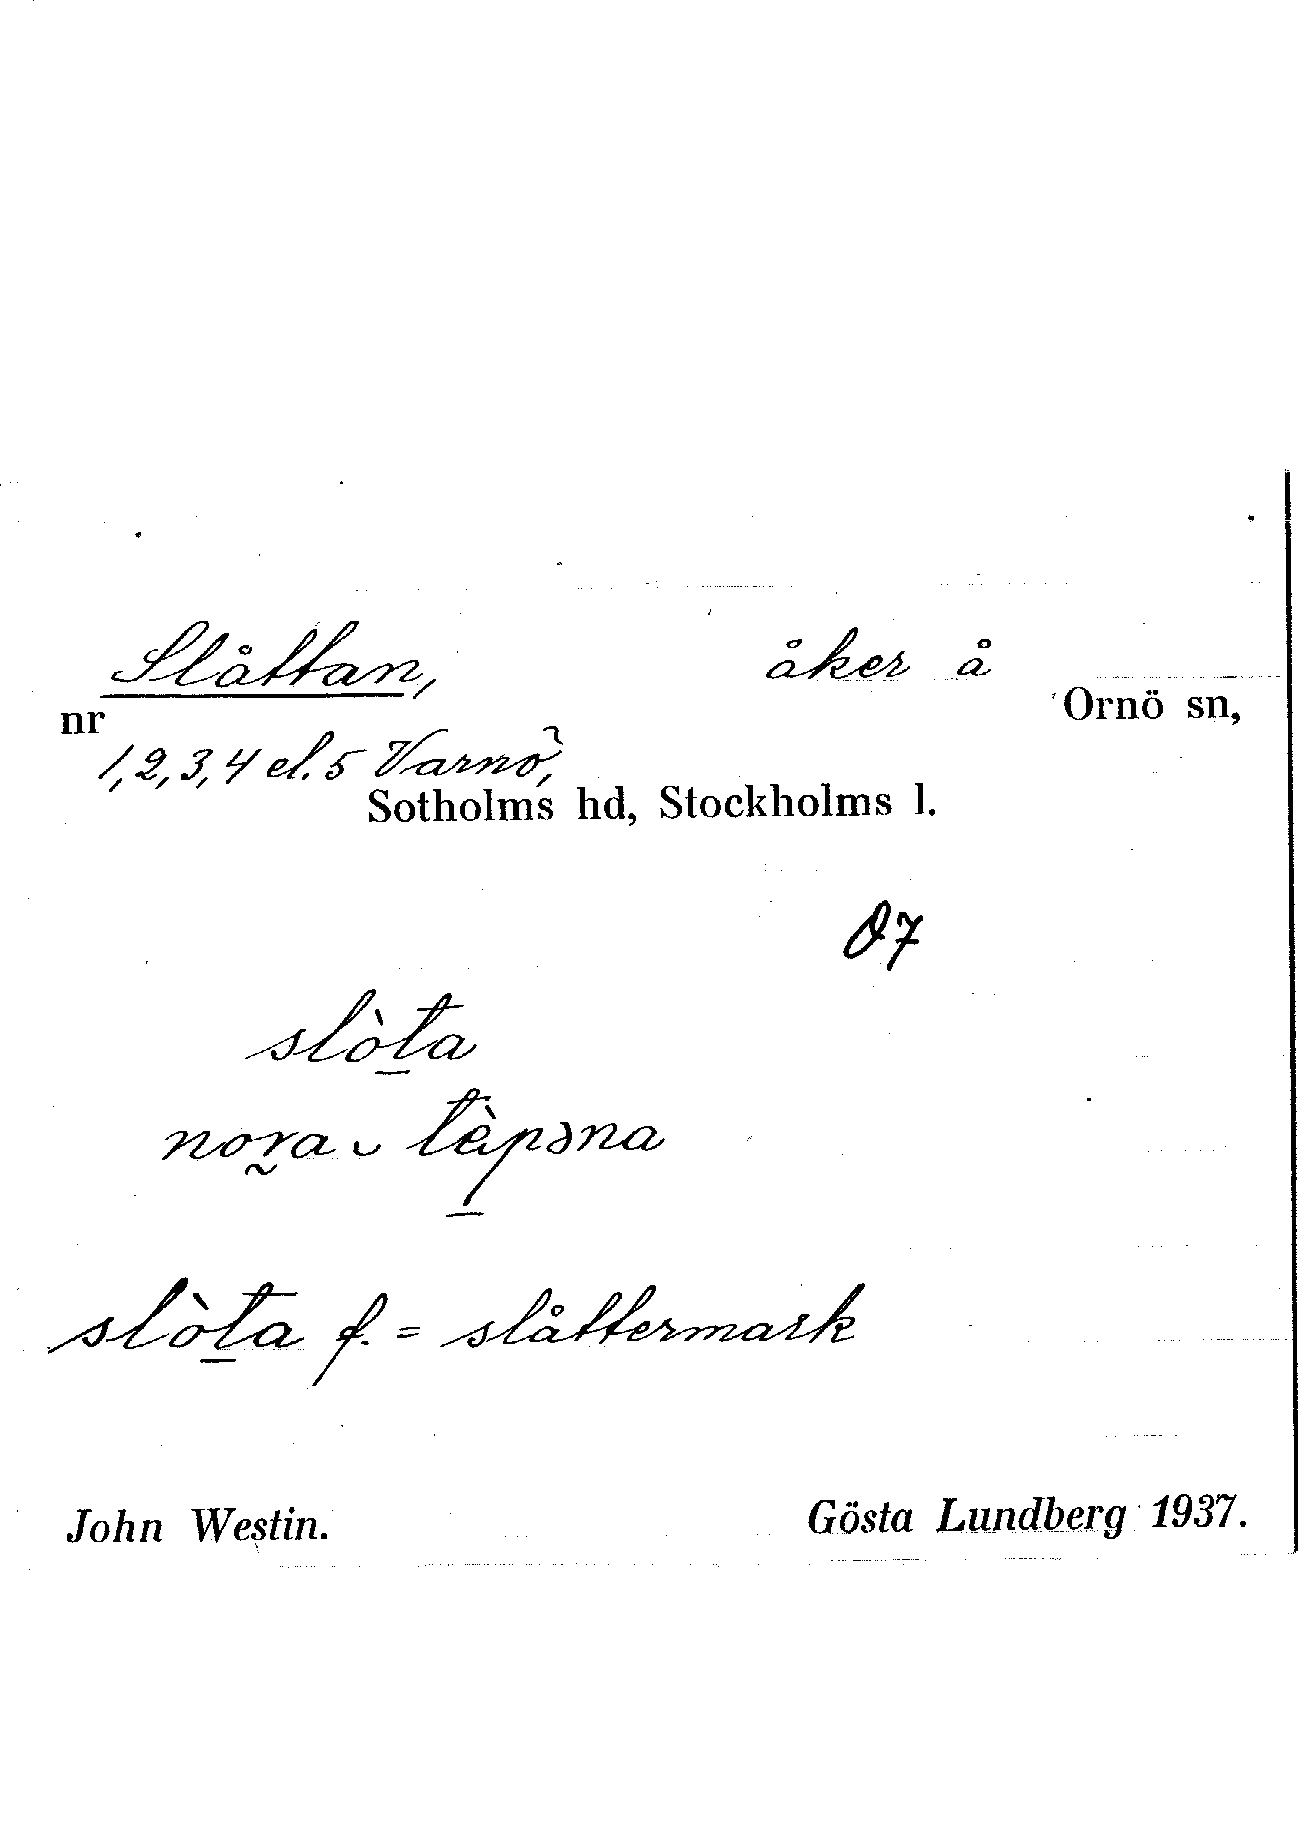 Slåttan, åker å
nr Ornö sn,
1,2,3,4 el. 5 Varnö,
Sotholms hd, Stockholms l.
Ö7
slòta
nora ᴗ tèpəna
slòta f. = slåttermark
John Westin. Gösta Lundberg 1937.